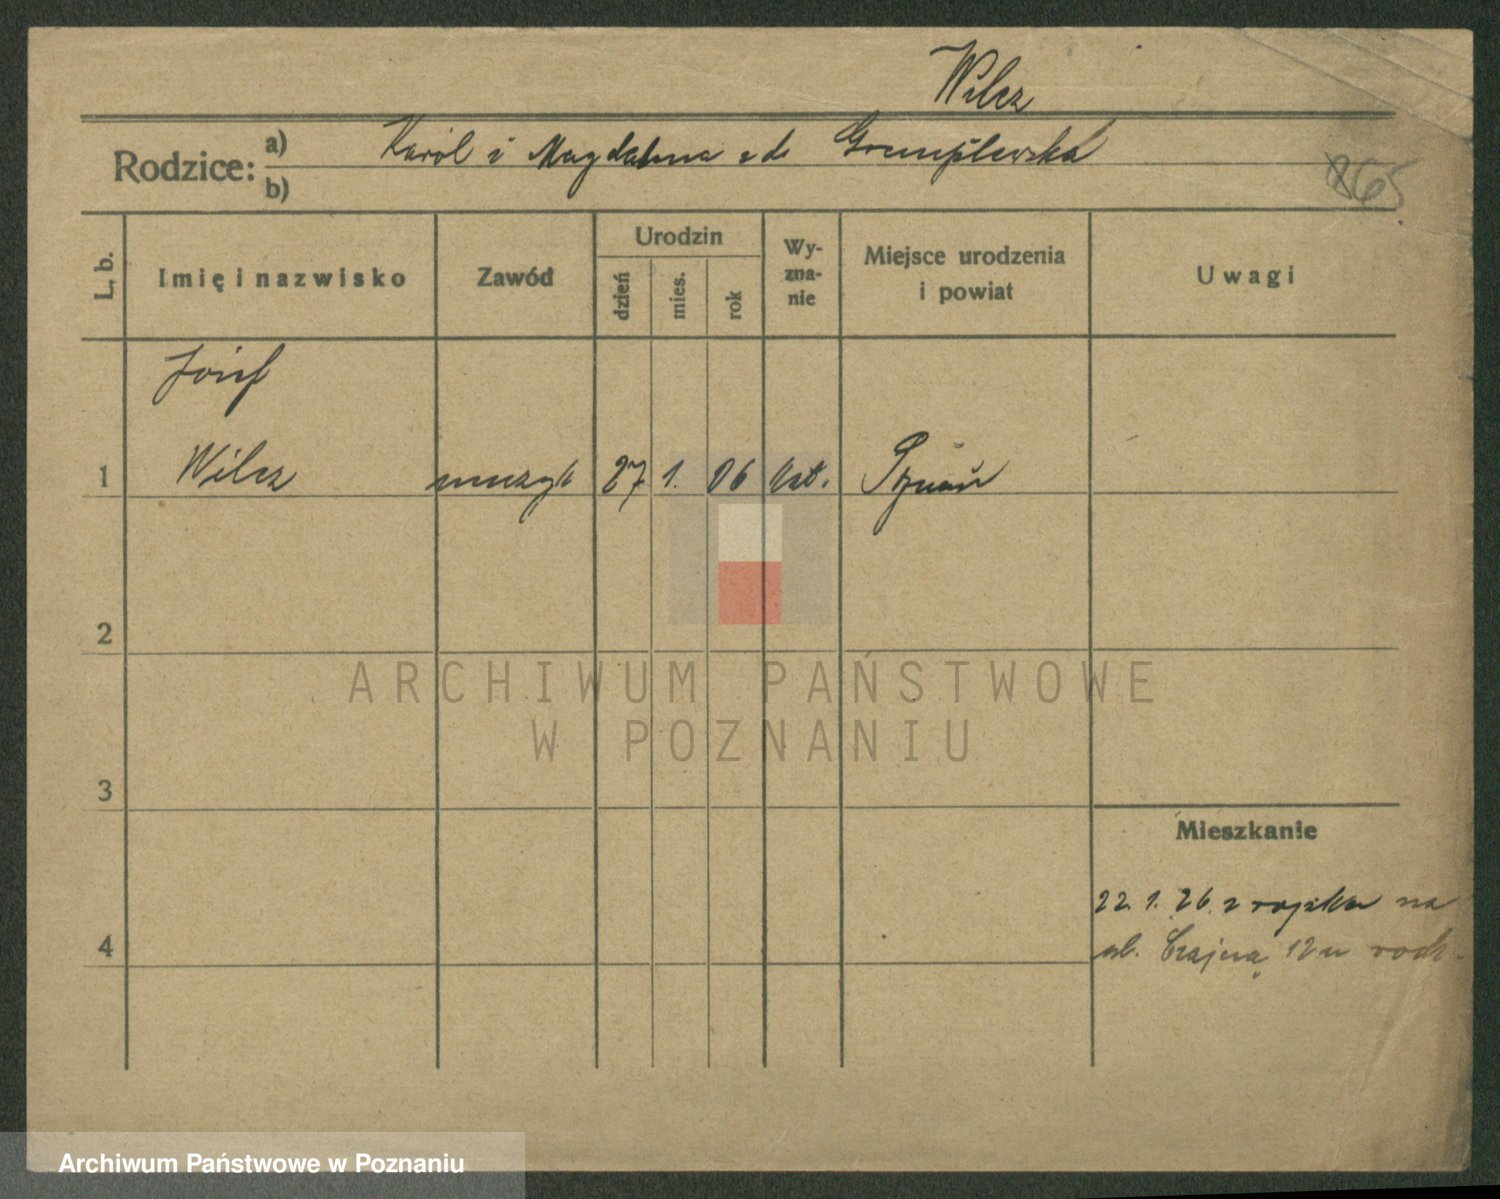 Wilcz
Rodzice: a) Karol i Magdalena z d.
b)
865
L. b.
Imię i nazwisko
Zawód
Urodzin
dzień
mies.
rok
Wy-
zna-
nie
Miejsce urodzenia
i powiat
Uwagi
Józef
1 Wilcz muzyk 27 1. 06 kat. Poznań
2
3
4
Mieszkanie
22. 1. 26. z wojska na
ul. 12 u rodz.
ARCHIWUM PAŃSTWOWE
W POZNANIU
Archiwum Państwowe w Poznaniu